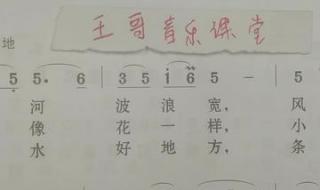 王哥音乐课堂
地
5 5. 6 3 5 i 6 5 – 5
河 波 浪 宽, 风
像 花 一 样, 小
水 好 地 方, 条